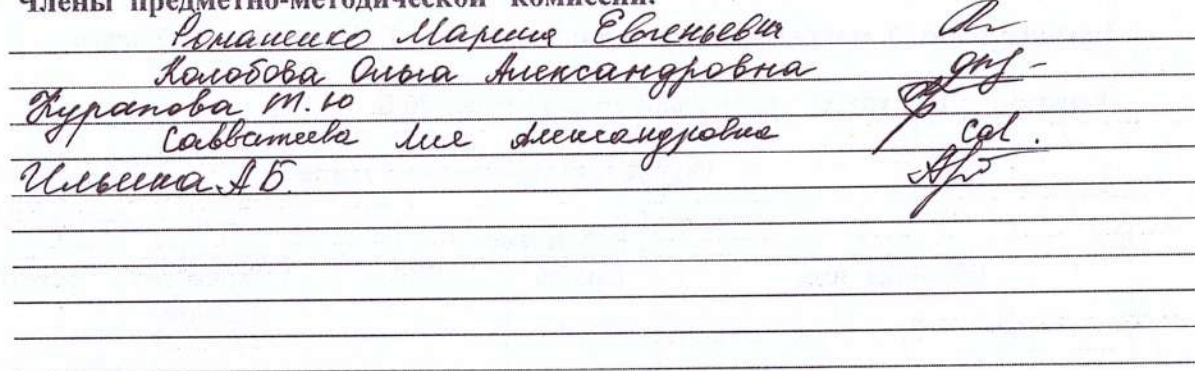 Члены предметно-методической комиссии:
Романенко Марина Евгеньевна
Колобова Ольга Александровна
Курапова Т. Ю
Савватеева Лия Александровна Сав.
Ильина А Б.